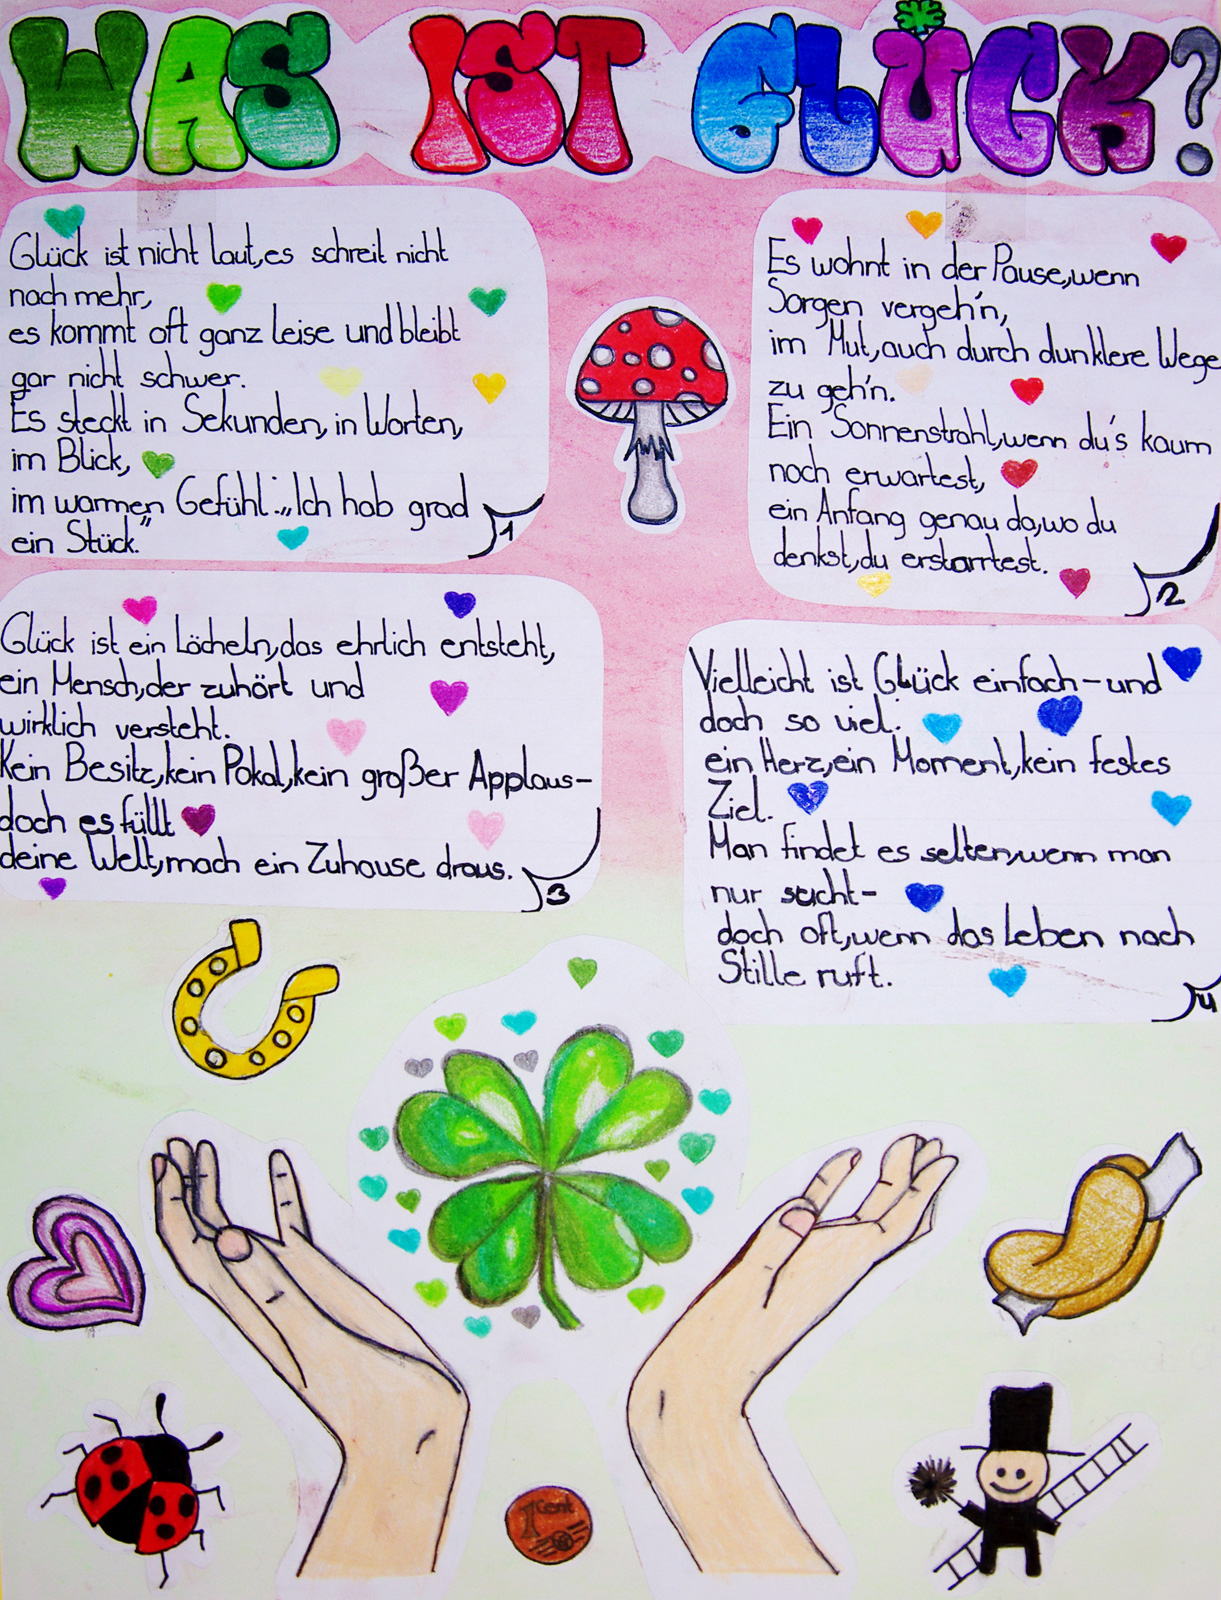 WAS IST GLÜCK?
Glück ist nicht laut, es schreit nicht
nach mehr,
es kommt oft ganz leise und bleibt
gar nicht schwer.
Es steckt in Sekunden, in Worten,
im Blick,
im warmen Gefühl: „Ich hab grad
ein Stück."
1
Es wohnt in der Pause, wenn
Sorgen vergeh'n,
im Mut, auch durch dunklere Wege
zu geh'n.
Ein Sonnenstrahl, wenn du's kaum
noch erwartest,
ein Anfang genau da, wo du
denkst, du erstarrtest.
2
Glück ist ein Lächeln, das ehrlich entsteht,
ein Mensch, der zuhört und
wirklich versteht.
Kein Besitz, kein Pokal, kein großer Applaus-
doch es füllt
deine Welt, mach ein Zuhause draus.
3
Vielleicht ist Glück einfach - und
doch so viel:
ein Herz, ein Moment, kein festes
Ziel.
Man findet es selten, wenn man
nur sucht-
doch oft, wenn das Leben nach
Stille ruft.
4
1 Cent